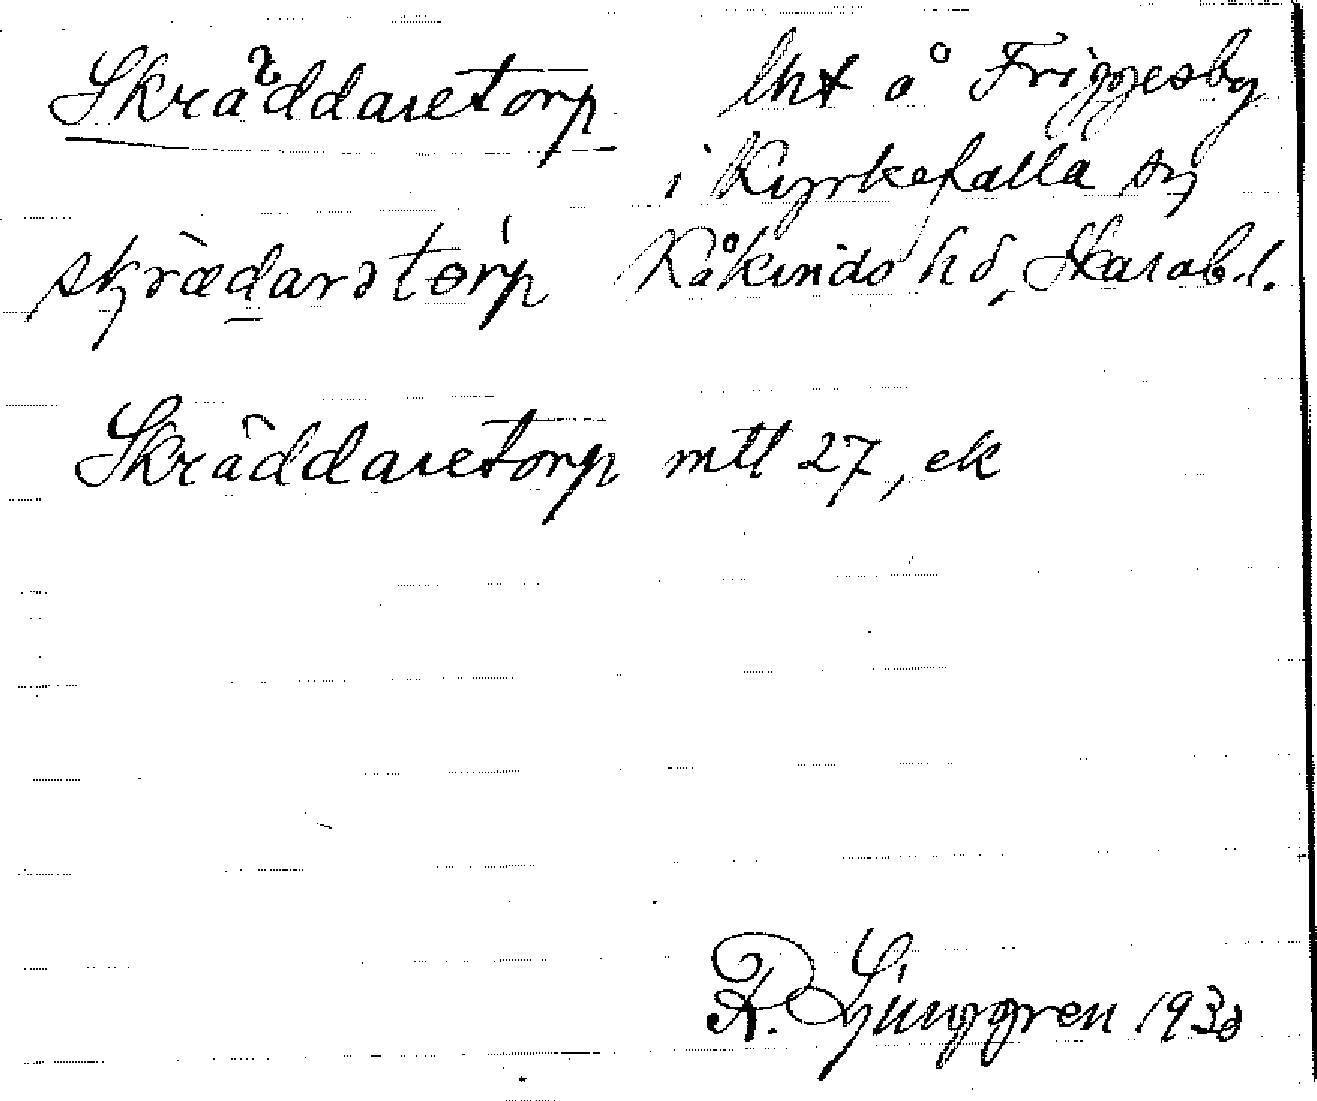 Skräddaretorp lht å Friggesby
i Kyrkefalla sn
skrædarətòrp Kåkinds hd, Skarab. l.
Skräddaretorp mtl 27, ek
R. Ljunggren 1930